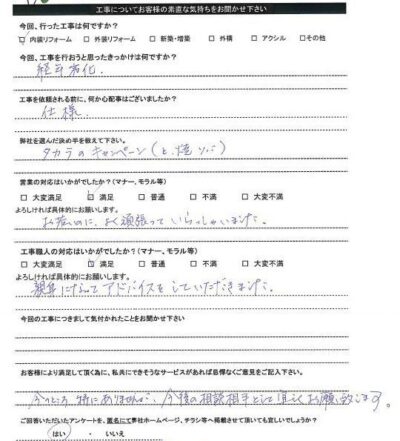 工事についてお客様の素直な気持ちをお聞かせ下さい
今回、行った工事は何ですか?
☑ 内装リフォーム □ 外装リフォーム □ 新築・増築 □ 外構 □ アクシル □その他
今回、工事を行おうと思ったきっかけは何ですか?
経年劣化.
工事を依頼される前に、何か心配事はございましたか?
仕様.
弊社を選んだ決め手を教えて下さい。
タカラのキャンペーン(と、焼ソバ)
営業の対応はいかがでしたか?(マナー、モラル等)
□ 大変満足 ☑ 満足 □ 普通 □ 不満 □ 大変不満
よろしければ具体的にお願いします。
お若いのに、よく頑張っていらっしゃいました。
工事職人の対応はいかがでしたか?(マナー、モラル等)
□ 大変満足 ☑ 満足 □ 普通 □ 不満 □ 大変不満
よろしければ具体的にお願いします。
親身になってアドバイスをしていただきました。
今回の工事につきまして気付かれたことをお聞かせ下さい
お客様により満足して頂く為に、私共にできそうなサービスがあれば忌憚なくご意見をご記入下さい。
今のところ特にありませんが、今後の相談相手として宜しくお願い致します。
ご回答いただいたアンケートを、匿名にて弊社ホームページ、チラシ等へ掲載させて頂いても宜しいでしょうか?
はい ・ いいえ